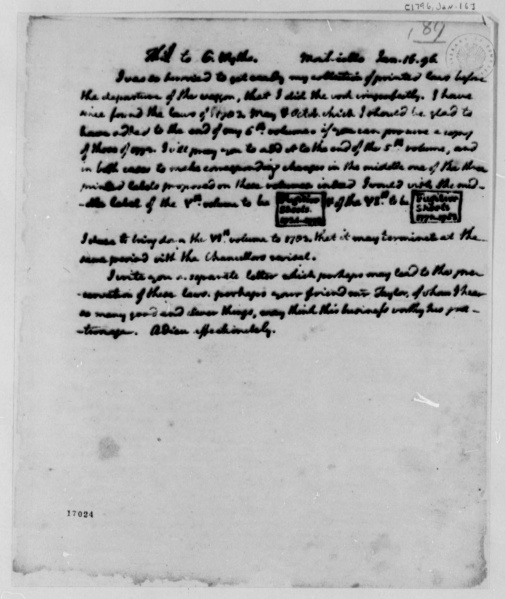 C1796, Jan. 16]
89
Th:J. to G. Wythe. Monticello Jan. 16. 96
I was so hurried to get ready my collection of printed laws before
the departure of the waggon, that I did the work incompletely. I have
since found the laws of 1782 May & Octob. which I should be glad to
have added to the end of my 6th volume & if you can procure a copy
of those of I will pray you to add it to the end of the 5th volume, and
in both cases to make corresponding changes in the middle one of the three
printed labels proposed on these volumes instead I would wish the mid-
-dle label of the Vth volume to be Fugitive Sheets & of the VIth to be Fugitive Sheets
I chuse to bring down the VIth volume to 1782 that it may terminate at the
same period with the Chancellors revisal.
I write you a separate letter which perhaps may lead to the pre-
-servation of these laws. perhaps your friend mr Taylor, of whom I hear
so many good and clever things, may think this business worthy his pa-
-tronage. Adieu affectionately.
17024